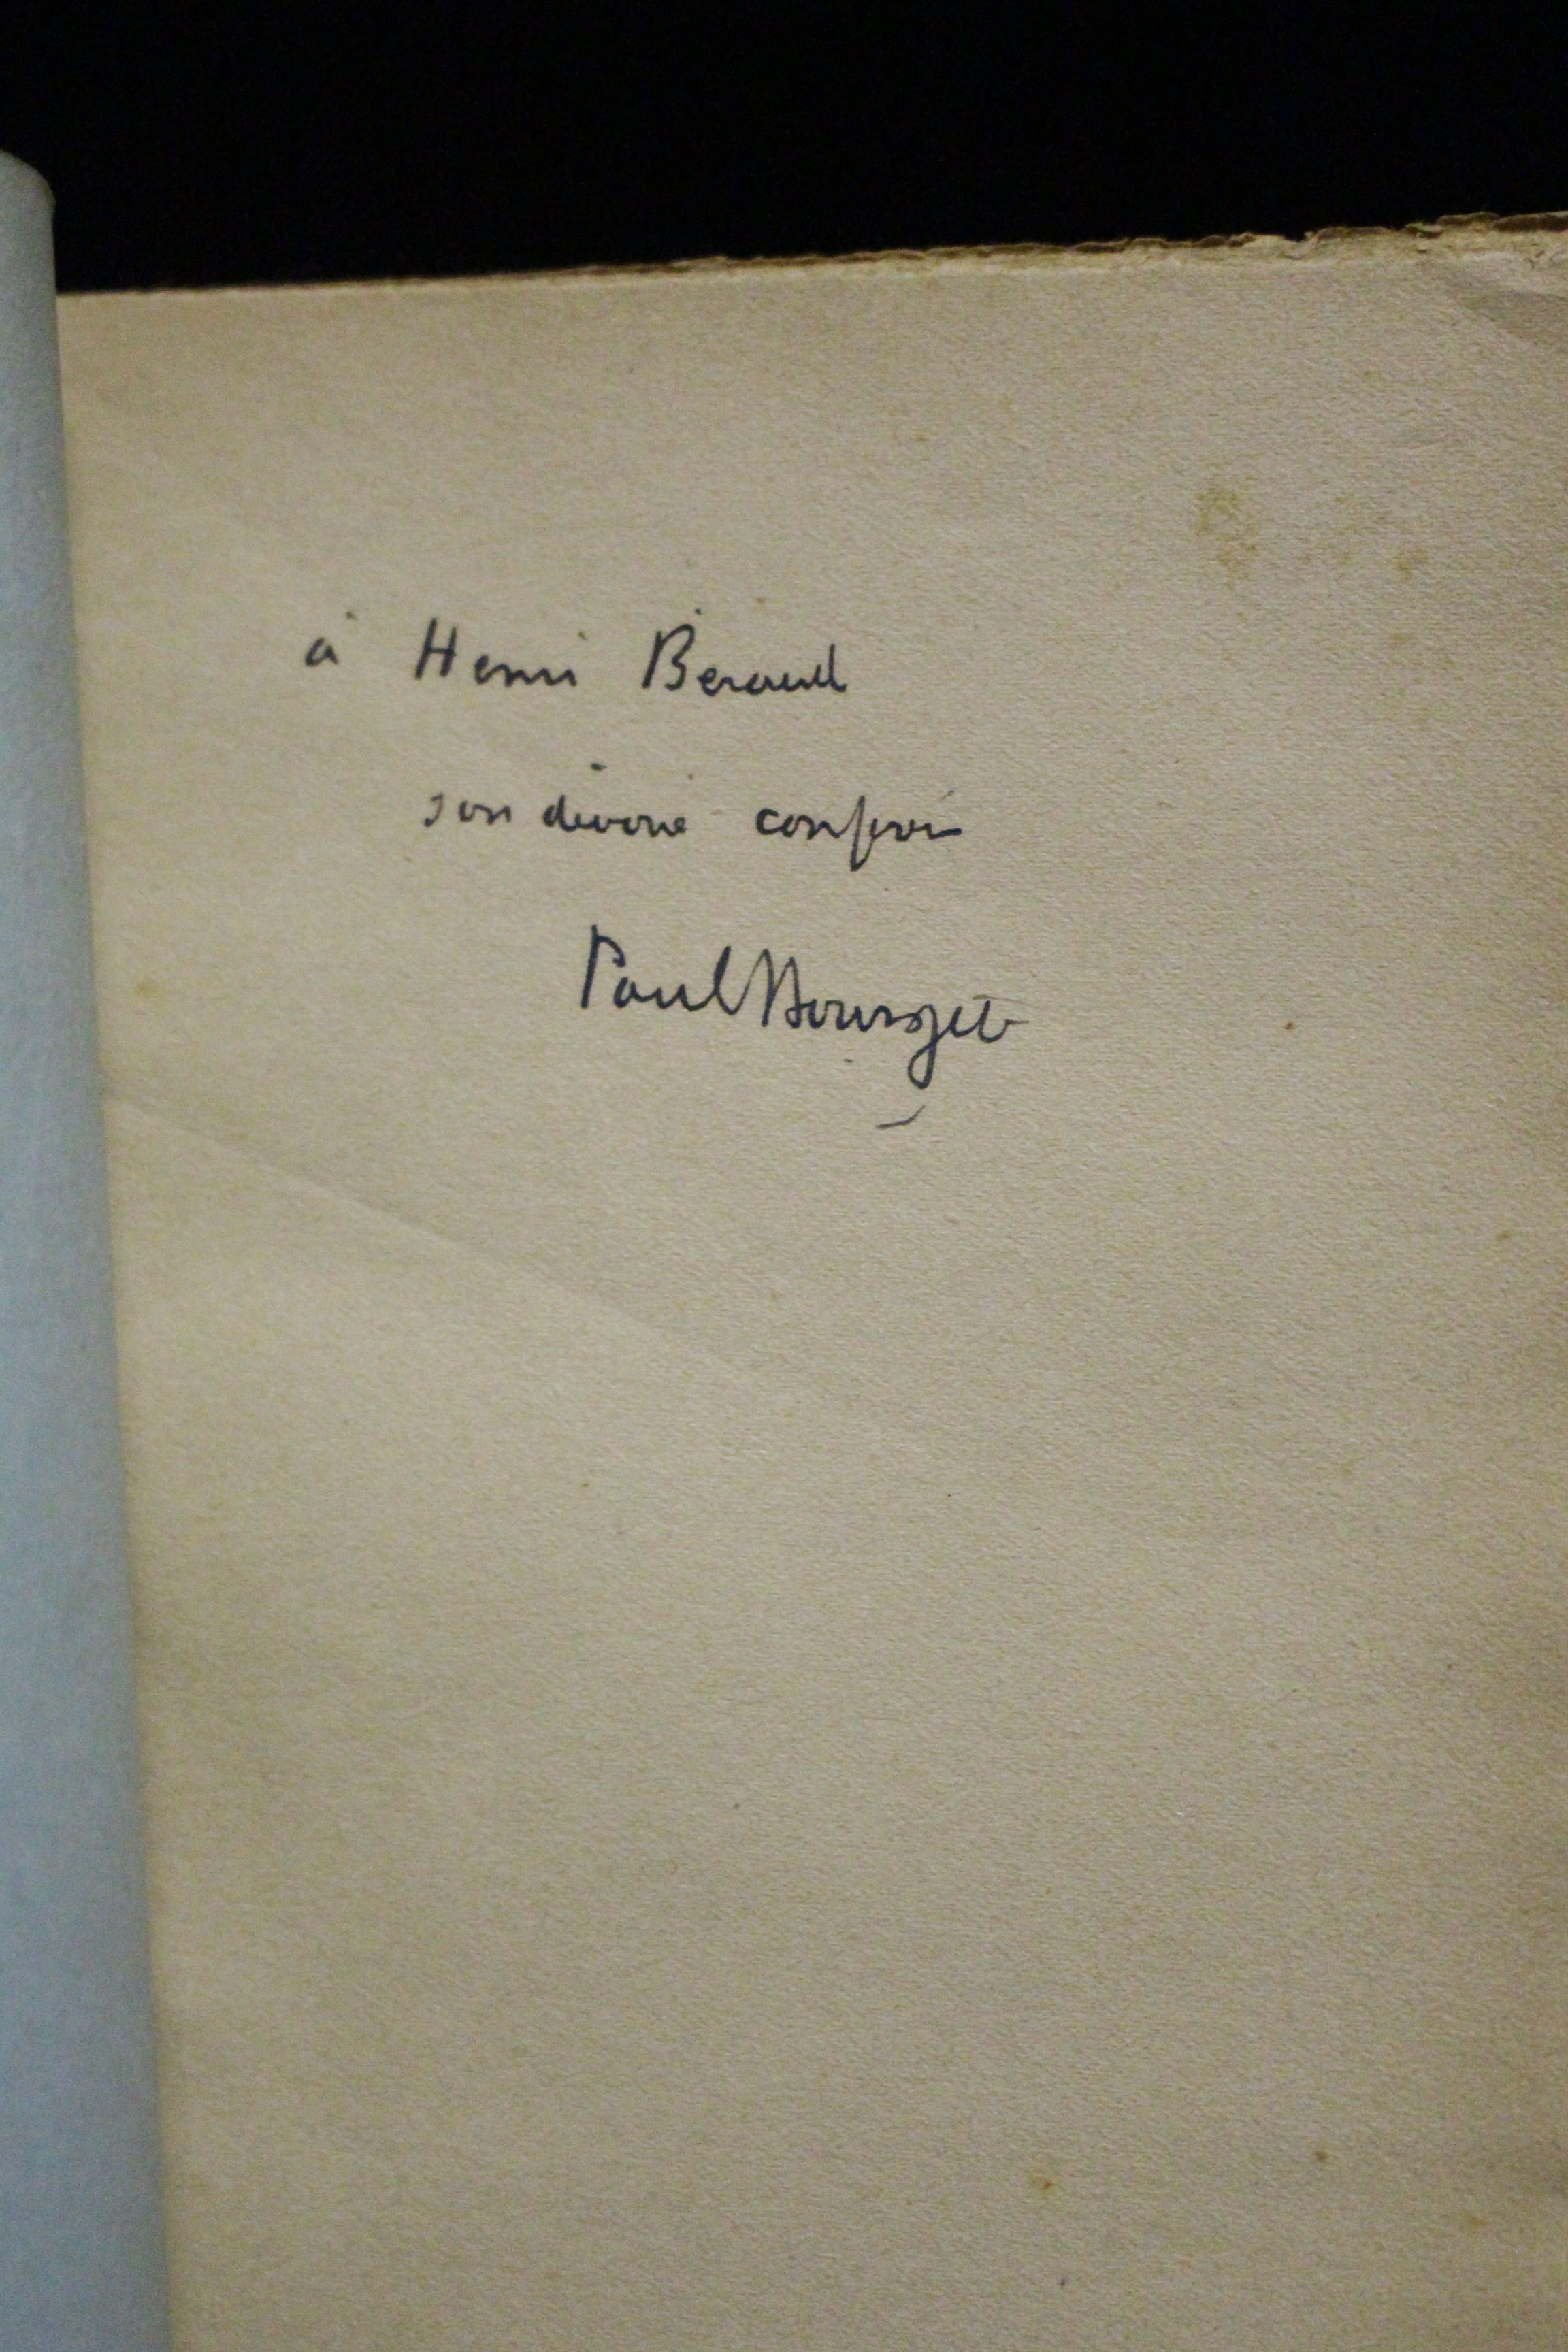 à Henri Béraud
son dévoué confrère
Paul Bourget